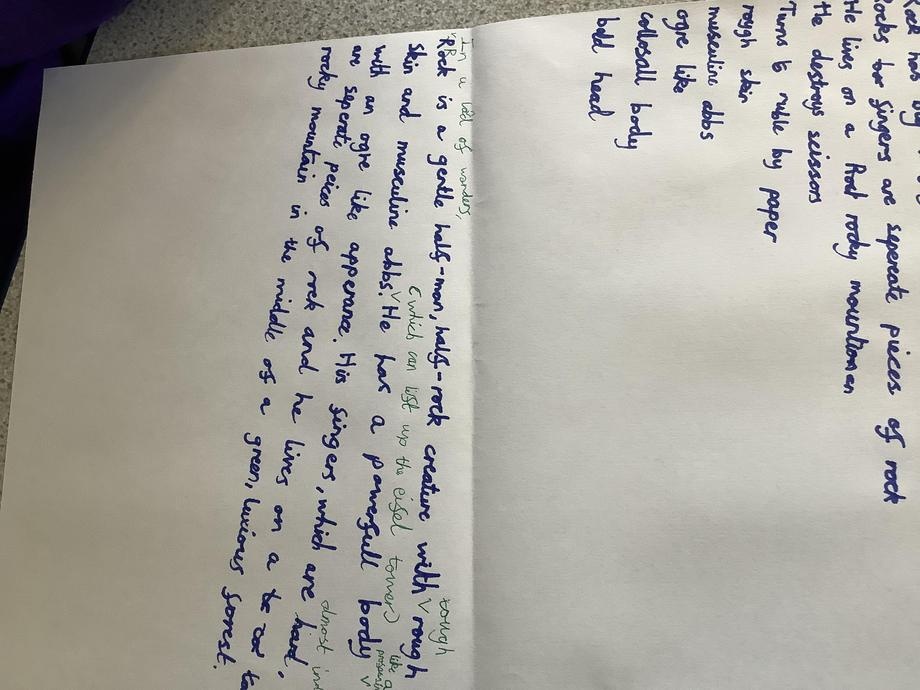 Rock has
Rocks fingers are sepercate pieces of rock
He lives on a rocky mountian
He destroys scissors
Turns to ruble by paper
rough skin
musculine abbs
ogre like
collosall body
bald head
In a land of wonders,
Rock is a gentle half-man, half-rock creature with rough
tough
skin and musculine abbs. He has a powerfull body
(which can lift up the eifel tower)
like a
with an ogre like apperance. His fingers, which are hard,
almost
are seperate peices of rock and he lives on a
rocky mountain in the middle of a green, luxious forest.